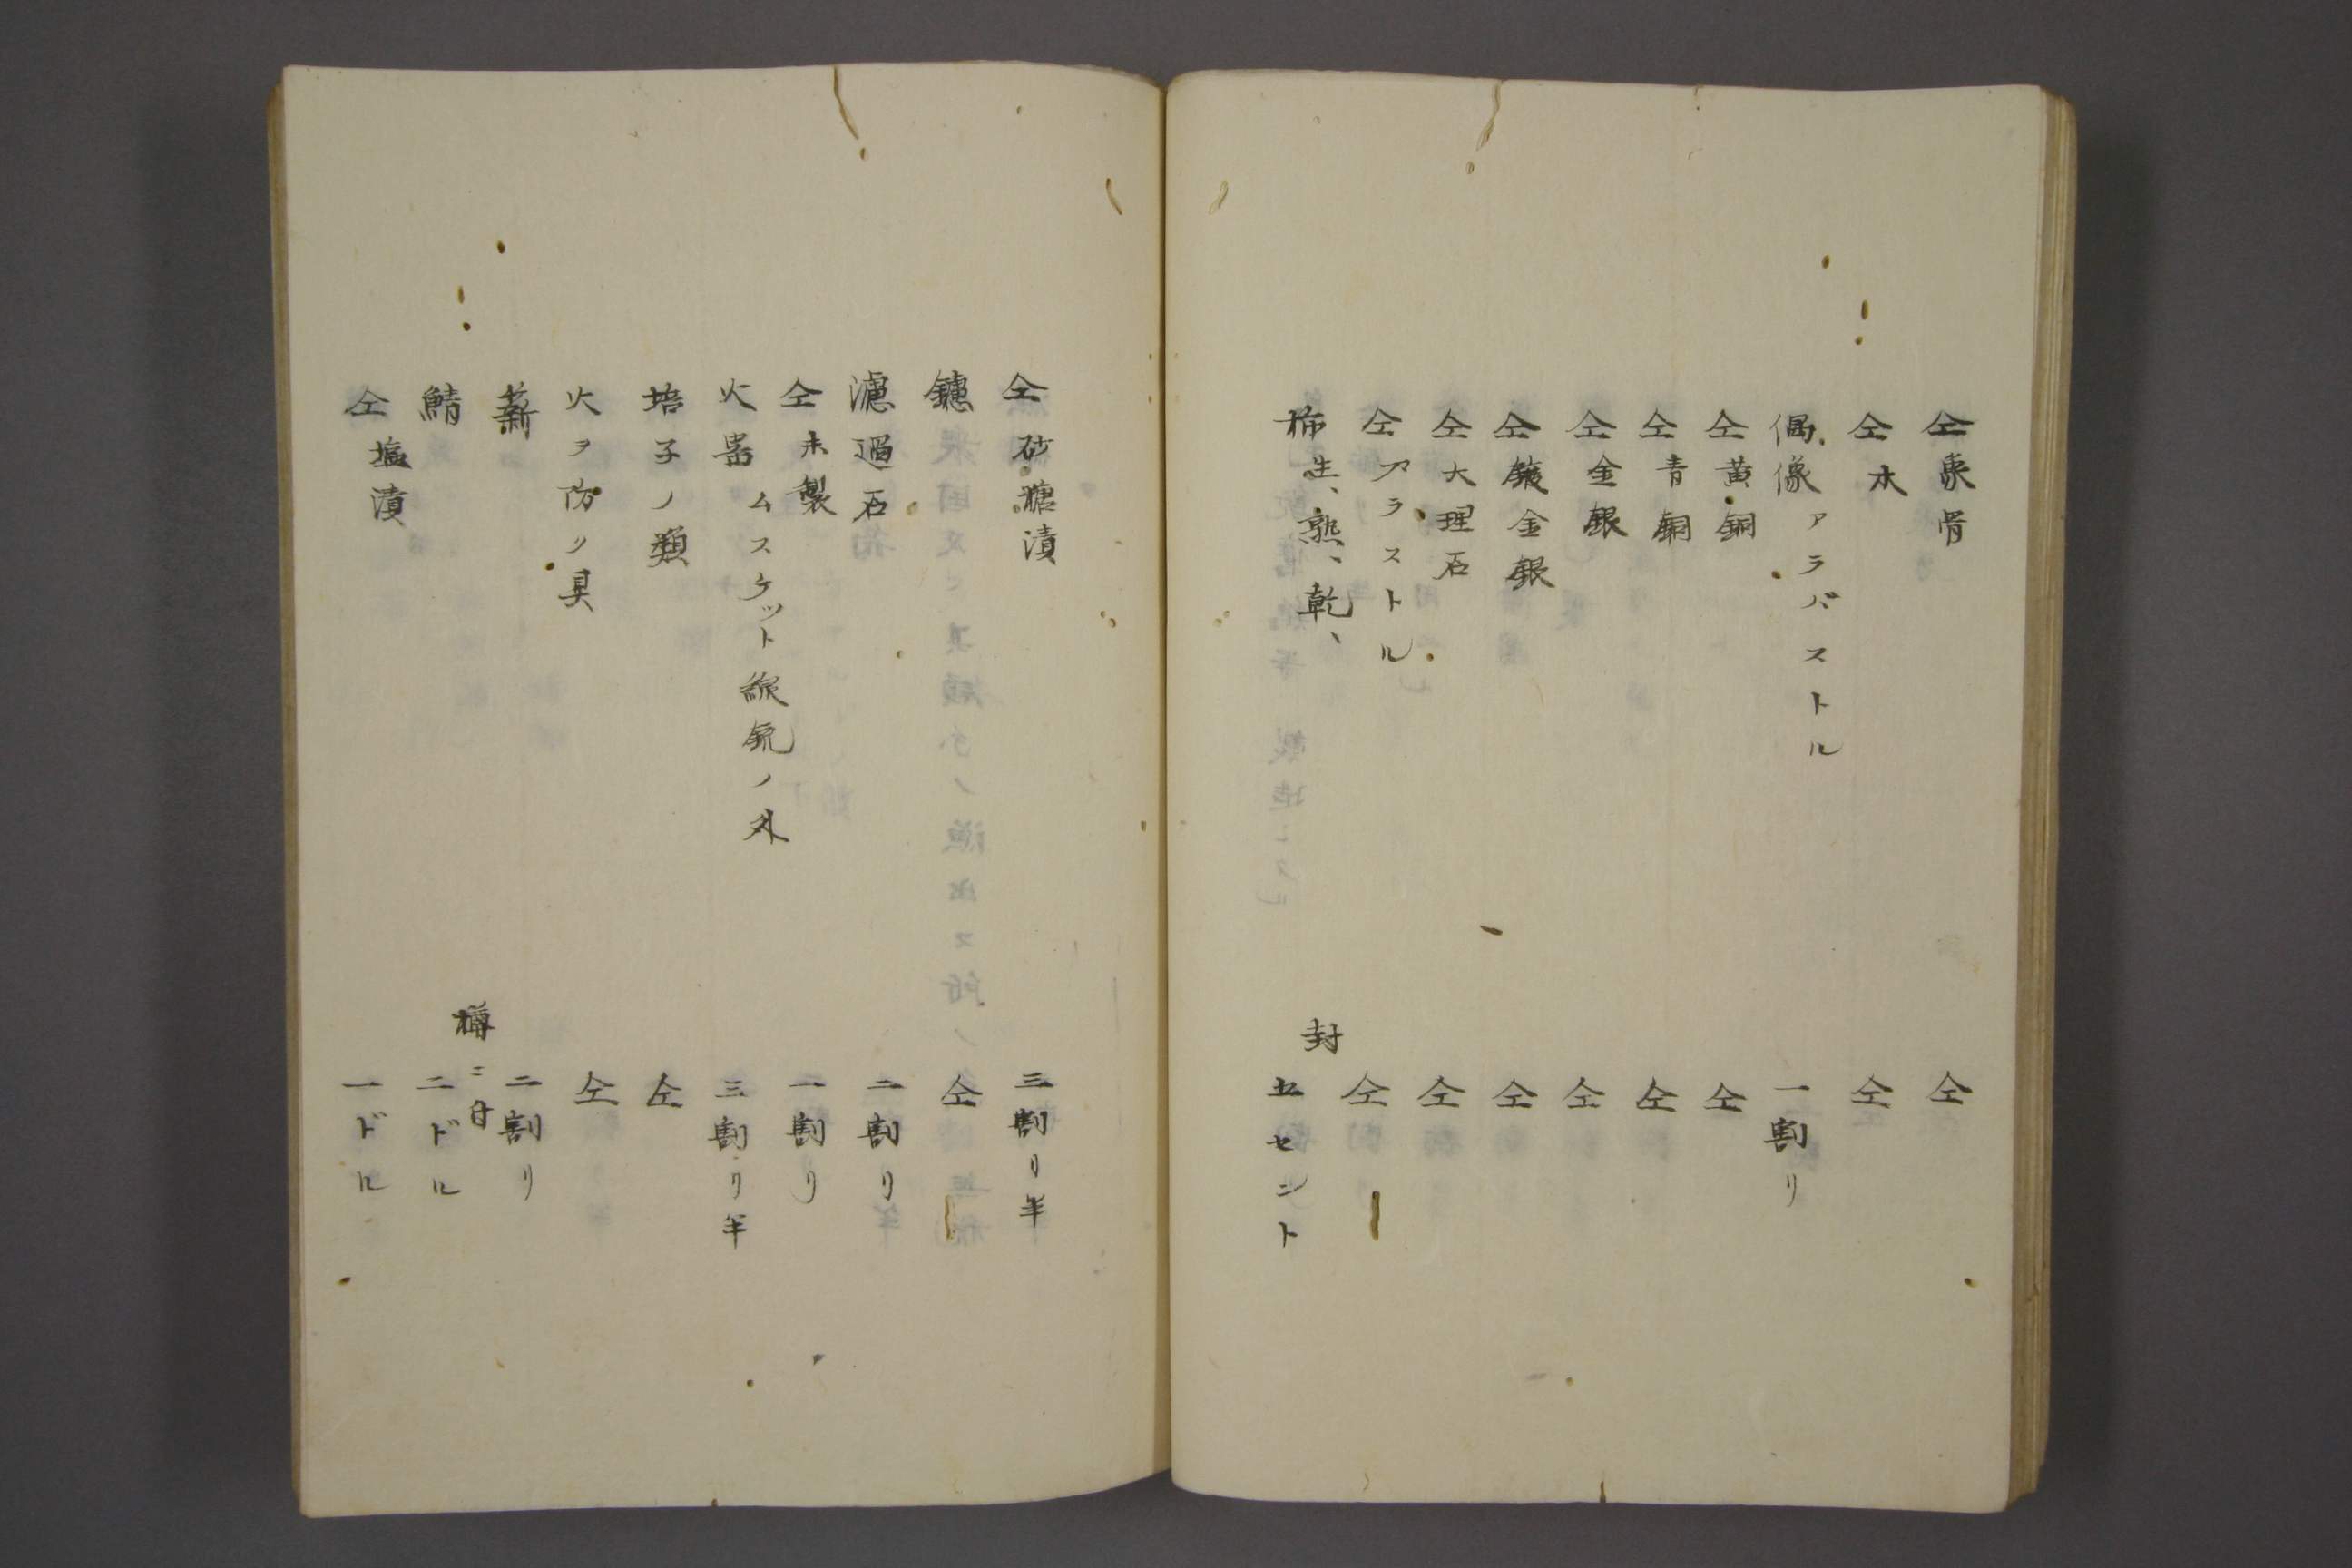 仝象骨 仝
仝木 仝
偶像アラバストル 一割リ
仝黄銅 仝
仝青銅 仝
仝金銀 仝
仝鍍金銀 仝
仝大理石 仝
仝プラストル 仝
柿生、熟、乾、 封
五セント
仝砂糖漬 三割リ半
鑢 仝
濾過石 二割リ半
仝未製 一割リ
火器ムスケット線銃ノ外 三割リ半
培子ノ類 仝
火ヲ防ク具 仝
薪 二割リ
鯖 樽ニ付
二ドル
仝塩漬 一ドル